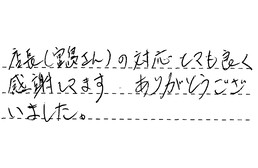 店長(宝島さん)の対応とても良く
感謝してます ありがとうござ
いました。